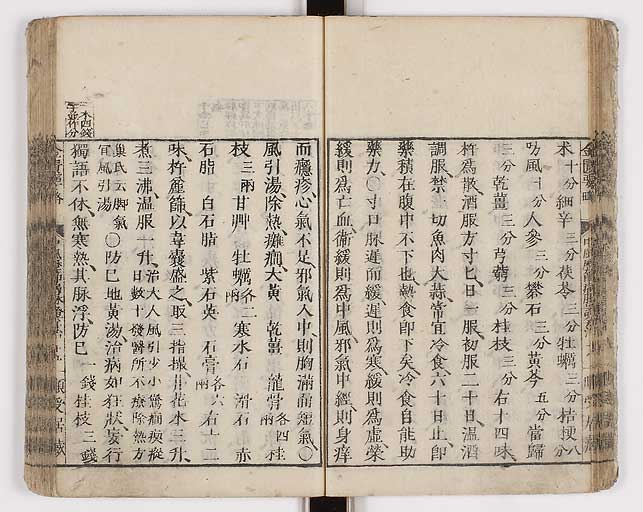 朮十分細辛三分茯苓三分牡蠣三分桔梗八分
防風十分人參三分礬石三分黃芩五分當歸
三分乾薑三分芎藭三分桂枝三分右十四味
杵爲散酒服方寸匕日一服初服二十日温酒
調服禁一切魚肉大蒜常宜冷食六十日止即
藥積在腹中不下也熱食即下矣冷食自能助
藥力○寸口脉遲而緩遲則爲寒緩則爲虛榮
緩則爲亡血衞緩則爲中風邪氣中經則身痒
而癮疹心氣不足邪氣入中則胸滿而短氣○
風引湯除熱癱癇大黃 乾薑 龍骨各四兩桂
枝三兩甘艸 牡蠣各二兩寒水石 滑石 赤
石脂 白石脂 紫石英 石膏各六兩右十二
味杵麄篩以韋囊盛之取三指撮井花水三升
煮三沸温服一升治大人風引少小驚癇瘈瘲
日數十發醫所不療除熱方
巢氏云脚氣宜風引湯○防己地黃湯治病如狂狀妄行
獨語不休無寒熱其脉浮防己一錢桂枝三錢